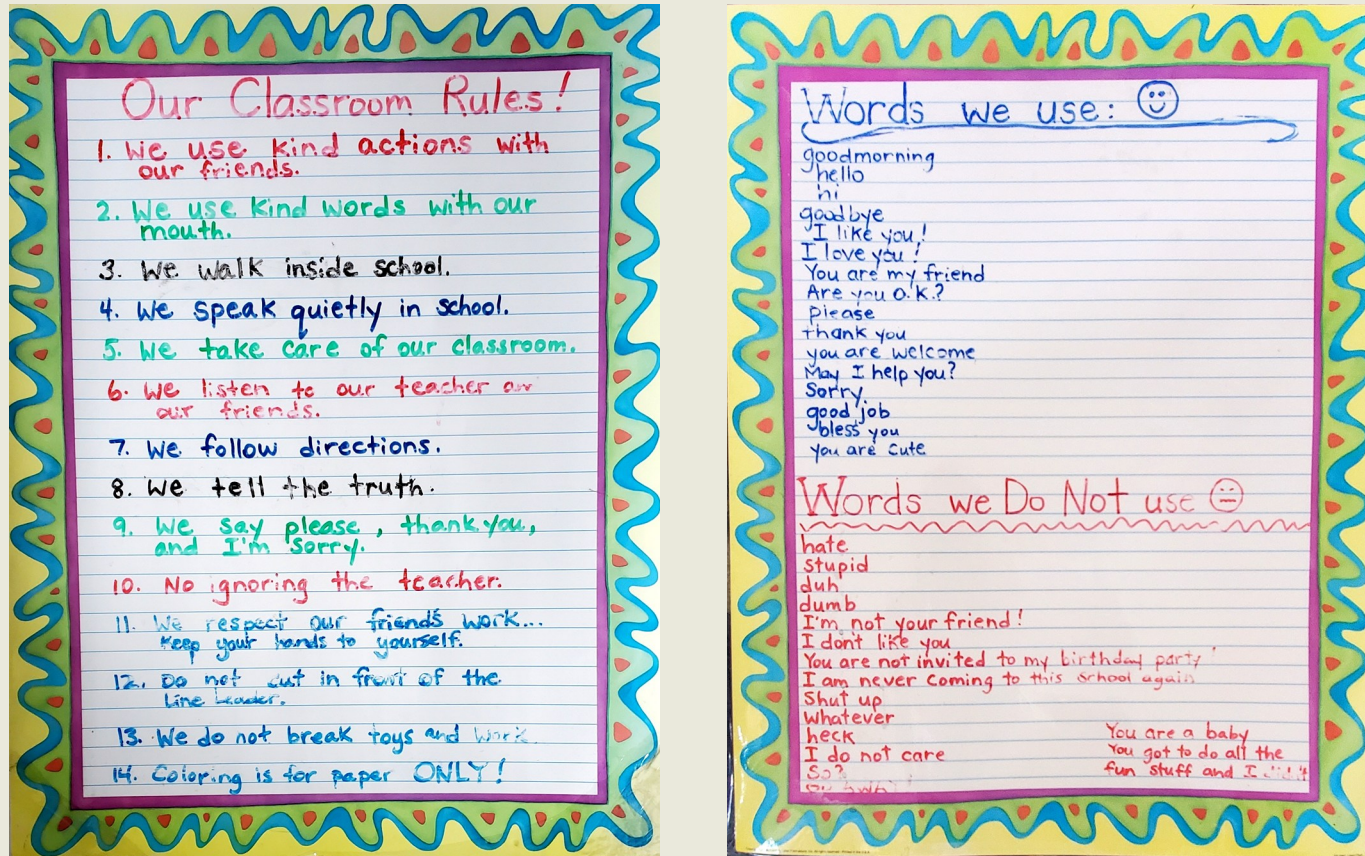 Our Classroom Rules!
1. We use kind actions with
our friends.
2. We use kind words with our
mouth.
3. We walk inside school.
4. We speak quietly in school.
5. We take care of our classroom.
6. We listen to our teacher
our friends.
7. We follow directions.
8. We tell the truth.
9. We say please, thank you,
and I'm sorry.
10. No ignoring the teacher.
11. We respect our friends work...
keep your hands to yourself.
12. Do not cut in front of the
Line Leader.
13. We do not break toys and work
14. Coloring is for paper ONLY!
Words we use:
goodmorning
hello
hi
goodbye
I like you!
I love you!
You are my friend
Are you O.K.?
please
thank you
you are welcome
May I help you?
Sorry.
good job
bless you
you are cute
Words we Do Not use
hate
stupid
duh
dumb
I'm not your friend!
I don't like you
You are not invited to my birthday party
I am never coming to this school again
Shut up
Whatever
heck
I do not care
So?
You are a baby
You got to do all the
fun stuff and I didn't